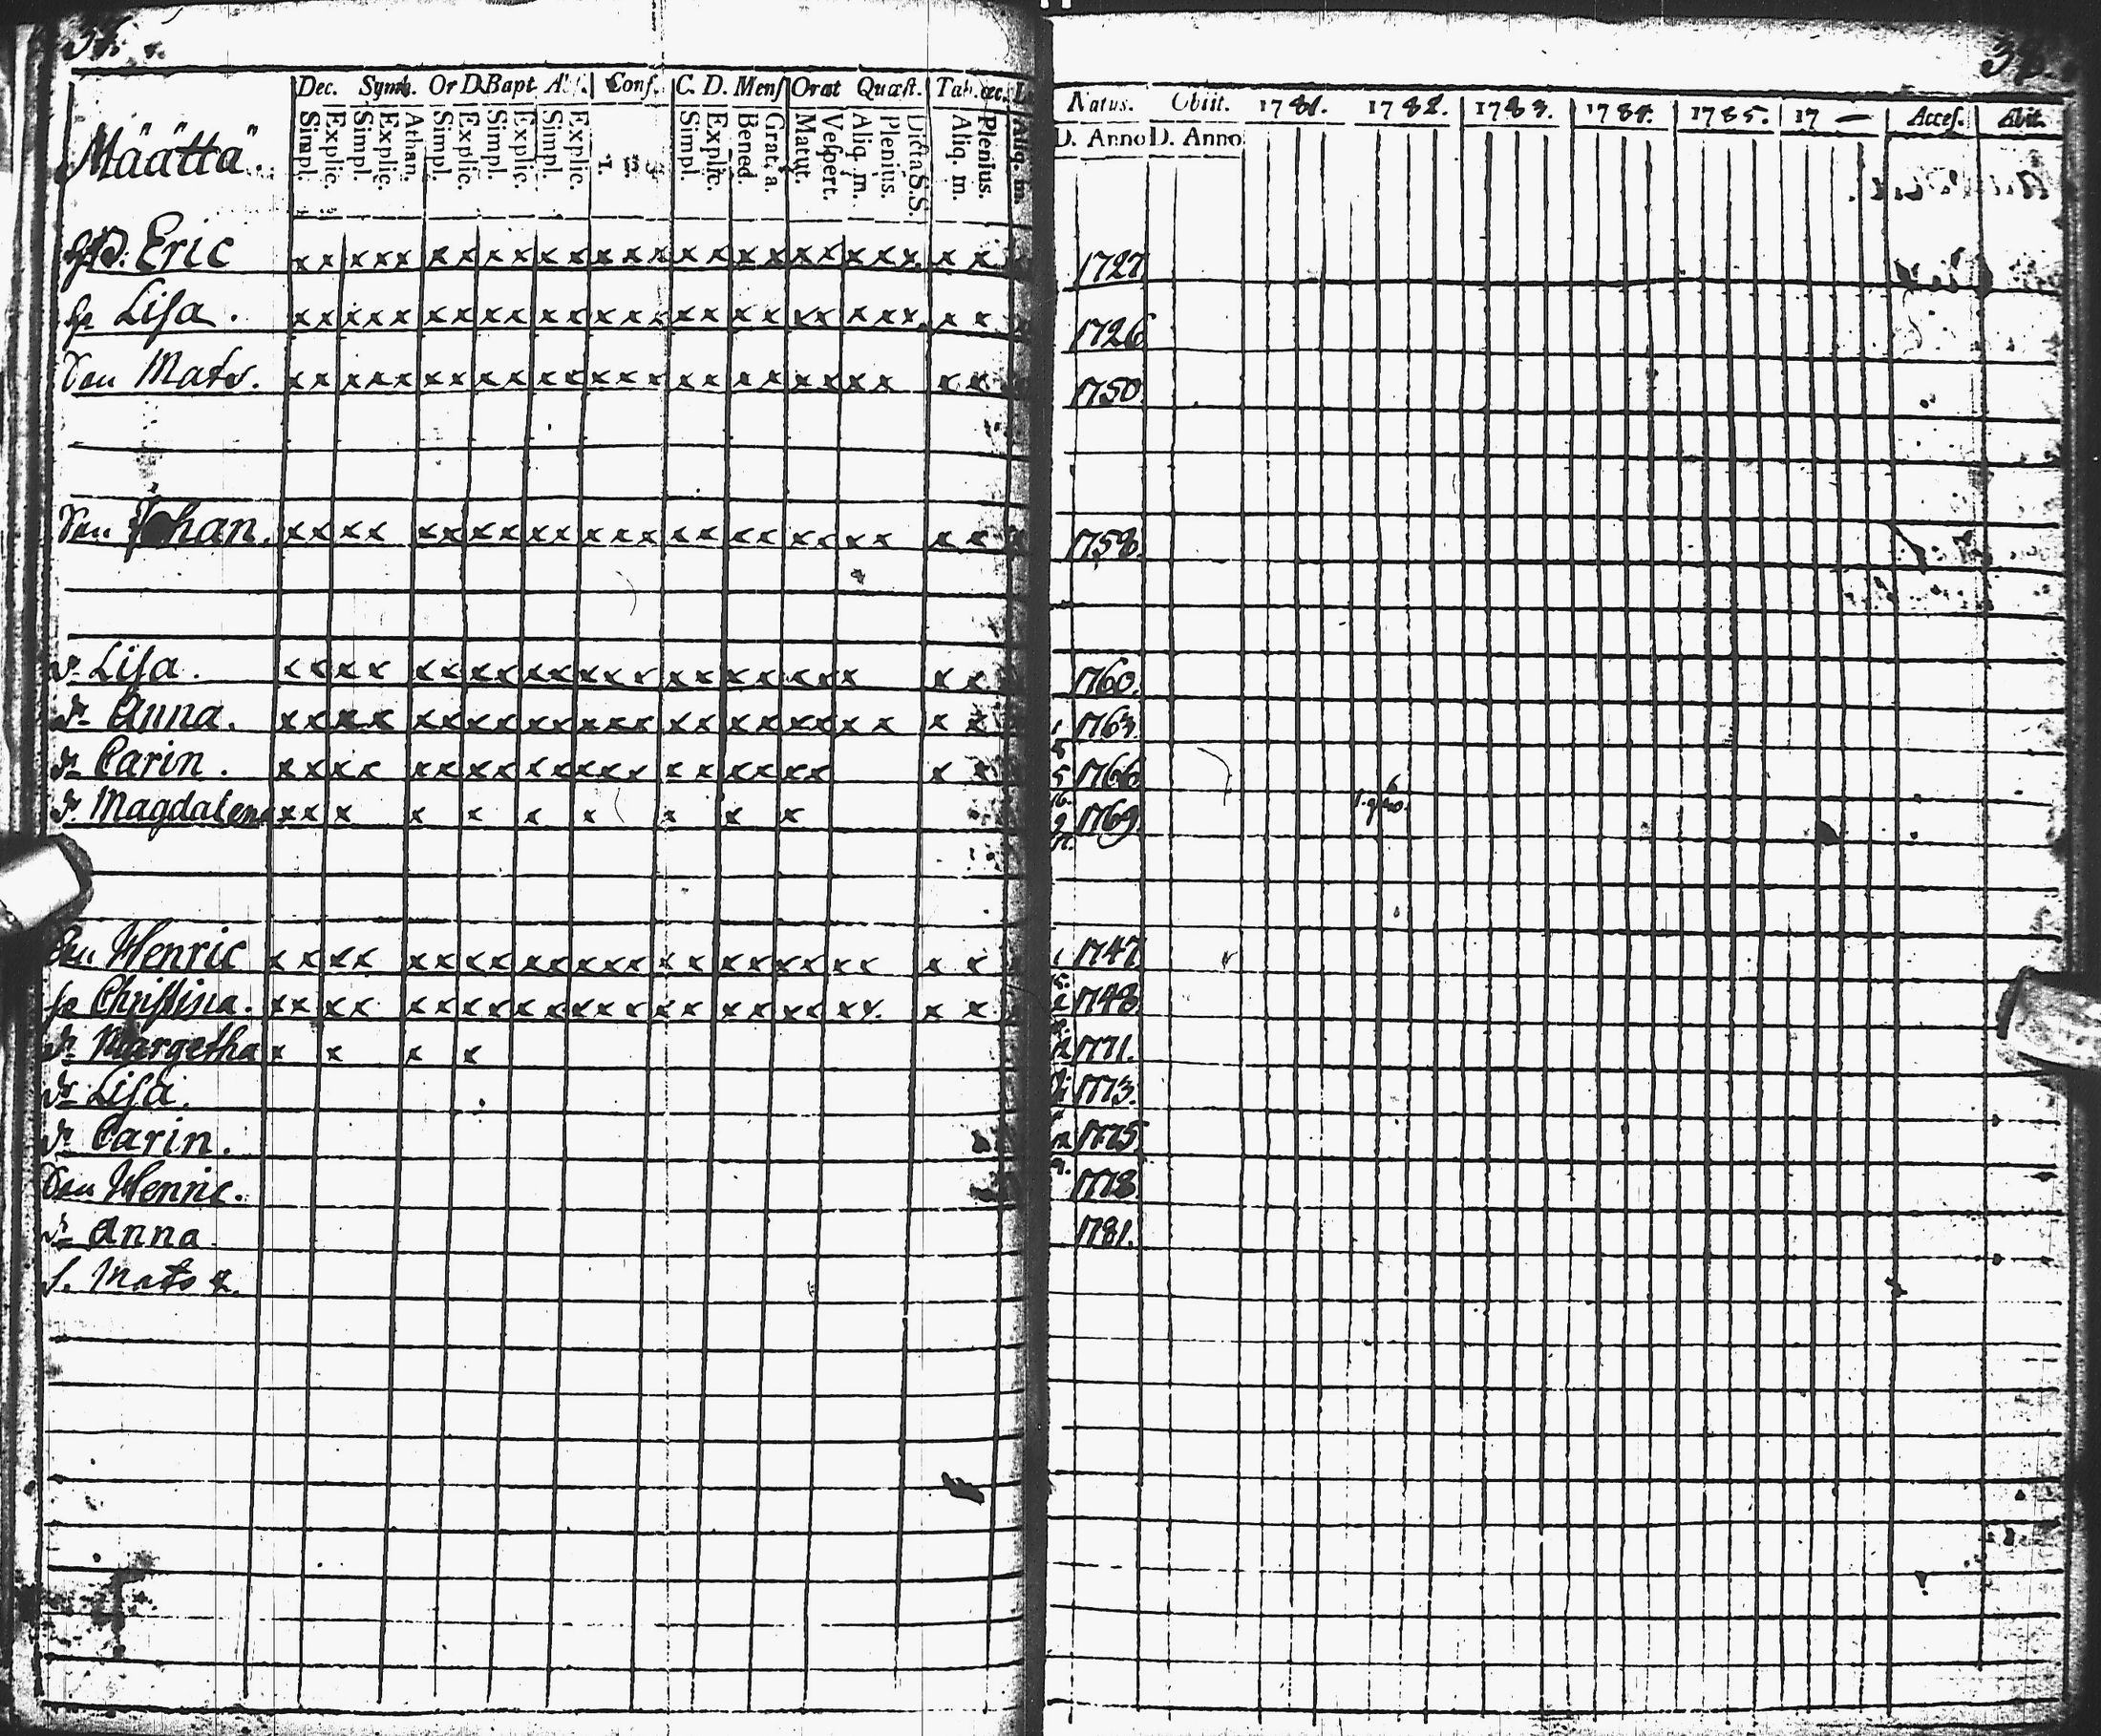 Dec. Symb. Or D. Bapt. Conf. C. D. Menſ Orat Quæſt. Tab. œc.
Simpl. Explic. Simpl. Explic. Athan. Simpl. Explic. Simpl. Explic. Simpl. Explic. 1. Simpl. Explic. Bened. Grat. a. Matut. Veſpert. Aliq. m. Plenius. Dicta S.S. Aliq. m. Plenius. Aliq. m.
Natus. Obiit. 1781. 1782. 1783. 1784. 1785. 17 — Acceſ. Abit.
D. Anno D. Anno
Määttä.
Eric x x x x x x x x x x x x x x x x x x x x x x x x x 1727
Liſa. x x x x x x x x x x x x x x x x x x x x x x x x x 1726
Son Mats. x x x x x x x x x x x x x x x x x x x x x x x x 1750
Son Johan. x x x x x x x x x x x x x x x x x x x x x x x 1758.
Dr. Liſa. x x x x x x x x x x x x x x x x x x x x x x 1760.
Dr. Anna. x x x x x x x x x x x x x x x x x x x x x x x 1763.
Dr. Carin. x x x x x x x x x x x x x x x x x x x x x 5 1766
Dr. Magdalena x x x x x x x x x x 9 1769.
Son Henric x x x x x x x x x x x x x x x x x x x x x x x 1747.
Chriſtina. x x x x x x x x x x x x x x x x x x x x x x x 1748.
Dr. Margetha x x x x 1771.
Dr. Liſa. 1773.
Dr. Carin. 1775.
Son Henric. 1778.
Dr. Anna 1781.
S. Mats